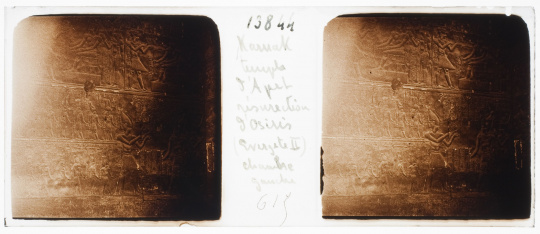 13844
Karnak
temple
d'Apet
résurrection
d'Osiris
(Evergète II)
chambre
gauche